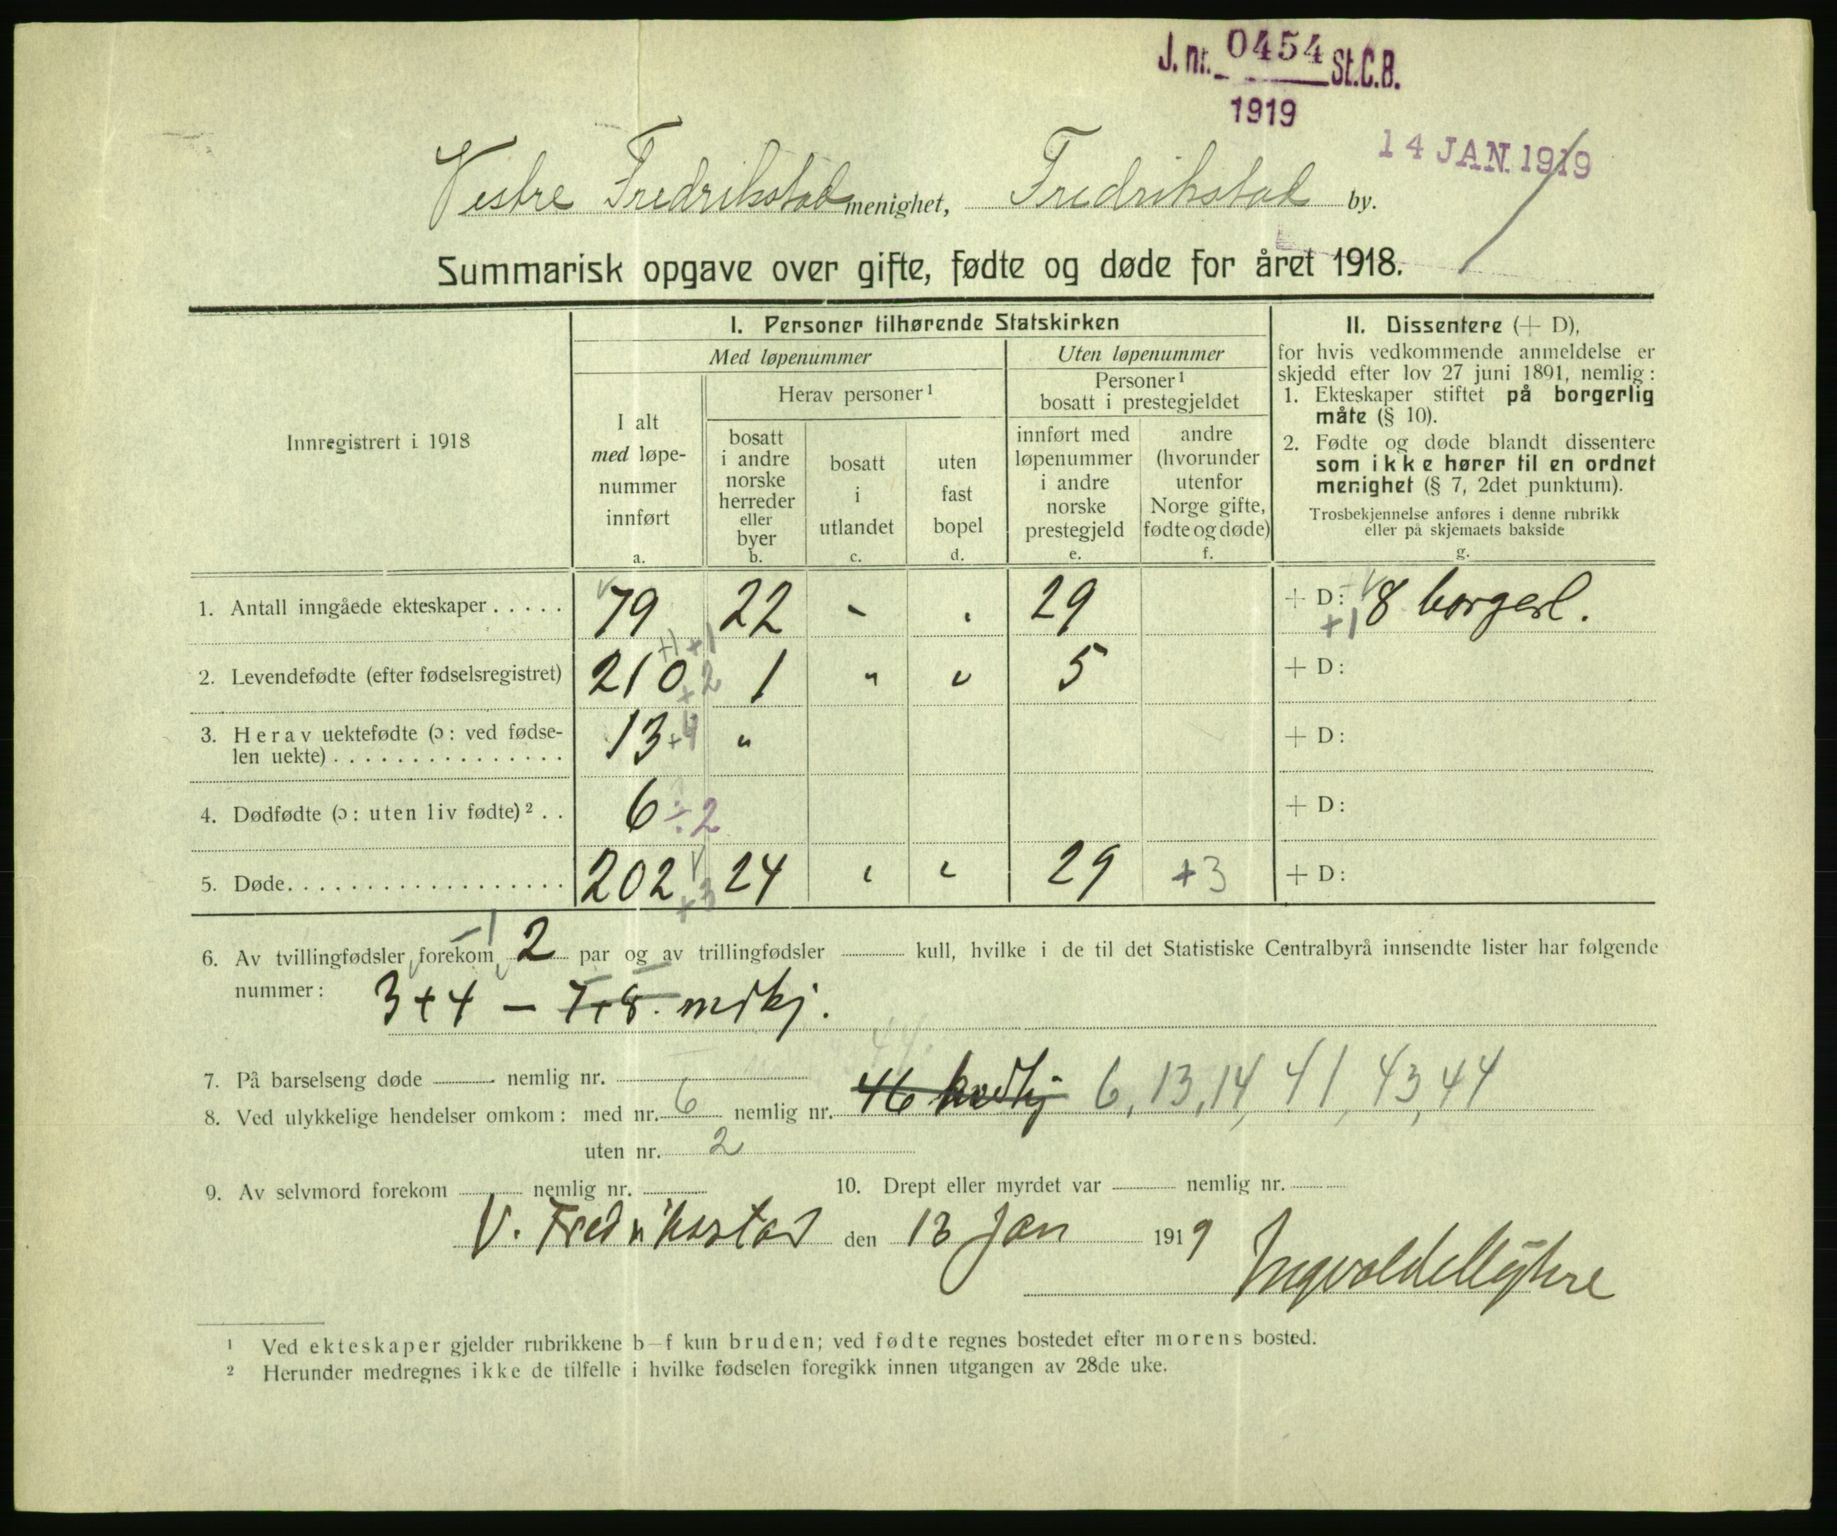 J. nr. 0454 St.C.B.
1919
14 JAN. 1919
Vestre Fredrikstad menighet, Fredrikstad by.
Summarisk opgave over gifte, fødte og døde for året 1918.
Innregistrert i 1918
I. Personer tilhørende Statskirken
Med løpenummer
Uten løpenummer
I alt
med løpe-
nummer
innført
a.
Herav personer¹
bosatt
i andre
norske
herreder
eller
byer
b.
bosatt
i
utlandet
c.
uten
fast
bopel
d.
Personer¹
bosatt i prestegjeldet
innført med
løpenummer
i andre
norske
prestegjeld
e.
andre
(hvorunder
utenfor
Norge gifte,
fødte og døde)
f.
II. Dissentere (+ D),
for hvis vedkommende anmeldelse er
skjedd efter lov 27 juni 1891, nemlig:
1. Ekteskaper stiftet på borgerlig
måte (§ 10).
2. Fødte og døde blandt dissentere
som ikke hører til en ordnet
menighet (§ 7, 2det punktum).
Trosbekjennelse anføres i denne rubrikk
eller på skjemaets bakside
g.
1. Antall inngåede ekteskaper . . . . . 79 22 – . 29 + D: 8 borgerl.
+1
+1 +1
2. Levendefødte (efter fødselsregistret) 210 +2 1 " " 5 + D:
3. Herav uektefødte (ɔ: ved fødse-
len uekte) . . . . . . . . . . . . . . . 13 +4 " + D:
4. Dødfødte (ɔ: uten liv fødte)² . . 6 ÷2 + D:
5. Døde. . . . . . . . . . . . . . . . . . 202 +3 24 " " 29 +3 + D:
6. Av tvillingfødsler forekom 2 par og av trillingfødsler kull, hvilke i de til det Statistiske Centralbyrå innsendte lister har følgende
nummer: 3+4 – 7+8. mdkj.
7. På barselseng døde nemlig nr.
8. Ved ulykkelige hendelser omkom: med nr. 6 nemlig nr. 46 kvdkj 6, 13, 14, 41, 43, 44
uten nr. 2
9. Av selvmord forekom nemlig nr. 10. Drept eller myrdet var nemlig nr.
V. Fredrikstad den 13 Jan 1919
¹ Ved ekteskaper gjelder rubrikkene b–f kun bruden; ved fødte regnes bostedet efter morens bosted.
² Herunder medregnes ikke de tilfelle i hvilke fødselen foregikk innen utgangen av 28de uke.